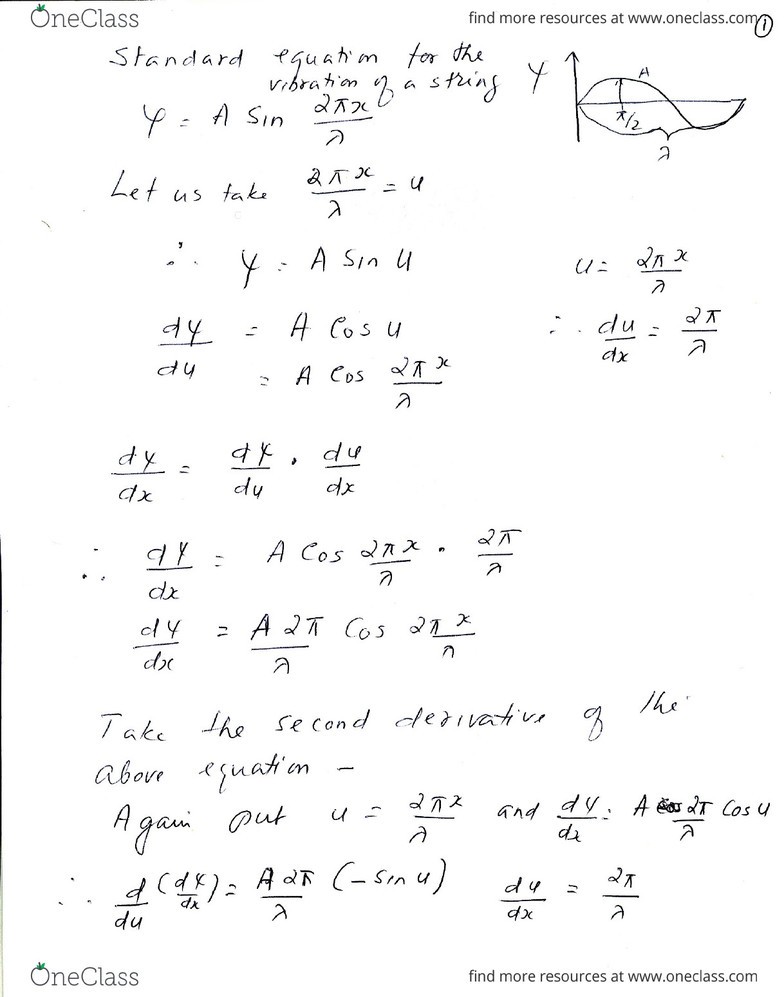 OneClass
find more resources at www.oneclass.com
1
Standard equation for the
vibration of a string
ψ = A sin 2πx/λ
ψ
A
π/2
λ
Let us take 2πx/λ = u
∴ ψ = A sin u
u = 2πx/λ
dψ/du = A cos u
∴ du/dx = 2π/λ
= A cos 2πx/λ
dψ/dx = dψ/du · du/dx
∴ dψ/dx = A cos 2πx/λ · 2π/λ
dψ/dx = A2π/λ cos 2πx/λ
Take the second derivative of the
above equation –
Again put u = 2πx/λ and dψ/dx = A 2π/λ cos u
∴ d/du (dψ/dx) = A2π/λ (– sin u) du/dx = 2π/λ
OneClass
find more resources at www.oneclass.com